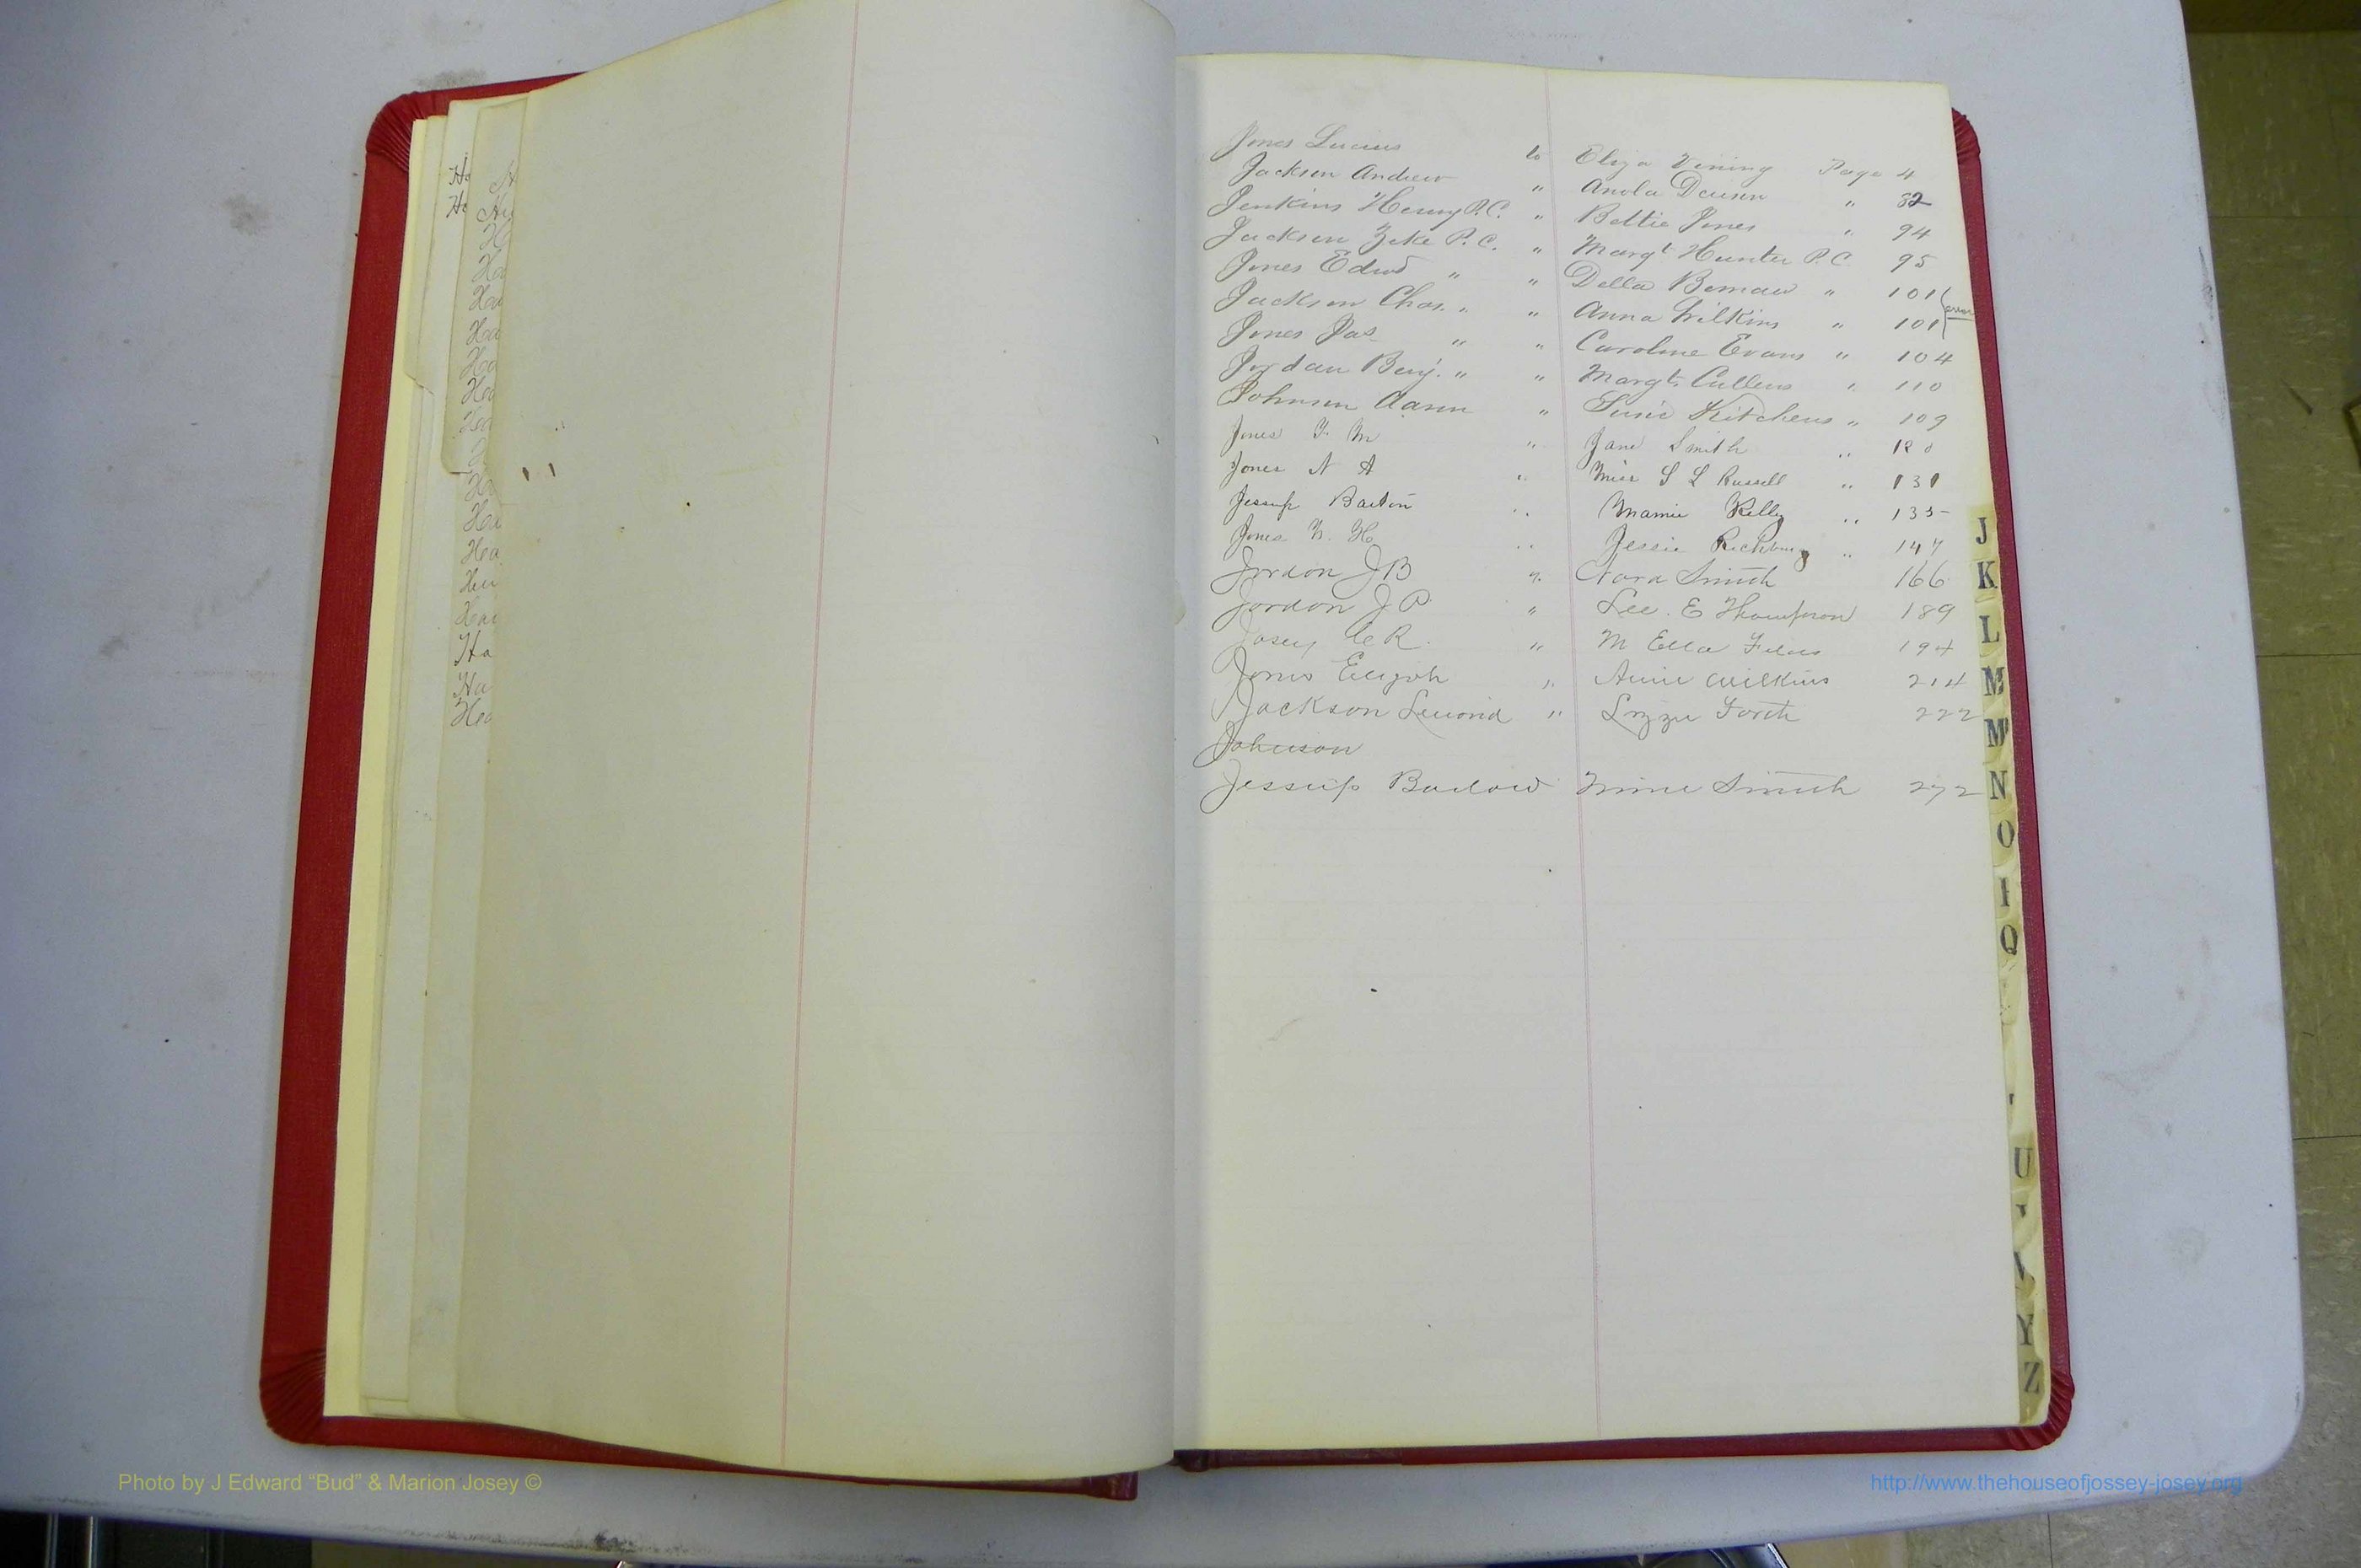 Jones Lucius to Eliza Vining Page 4
Jackson Andrew " Anola Dawson " 82
Jenkins Henry P.C. " Bettie Jones " 94
Jackson Zeke P.C. " Margt Hunter P.C. 95
Jones Edwd " " Della " 101
Jackson Chas. " " Anna Wilkins " 101
Jones Jas " " Caroline Evans " 104
Jordan Benj. " " Margt. Cullens " 110
Johnson Aaron " Susie Kitchens " 109
Jones F. M " Jane Smith "
Jones N A " Miss S L Russell " 131
Jessup Barton " Mamie Kelly " 135
Jones W. H " Jessie Richburg " 147
Jordon J B " Nora Smith 166
Jordon J P " Lee. E Thompson 189
Josey C R. " M Ella 194
Jones Elijah " Annie Wilkins 214
Jackson " Lizzie 222
Johnson
Jessup Smith 272
Ho
Ho
Hu
Ha
Ha
Ha
Ha
J
K
L
M
Mc
N
O
Q
U
Y
Z
Photo by J Edward “Bud” & Marion Josey ©
http://www.thehouseofjossey-josey.org